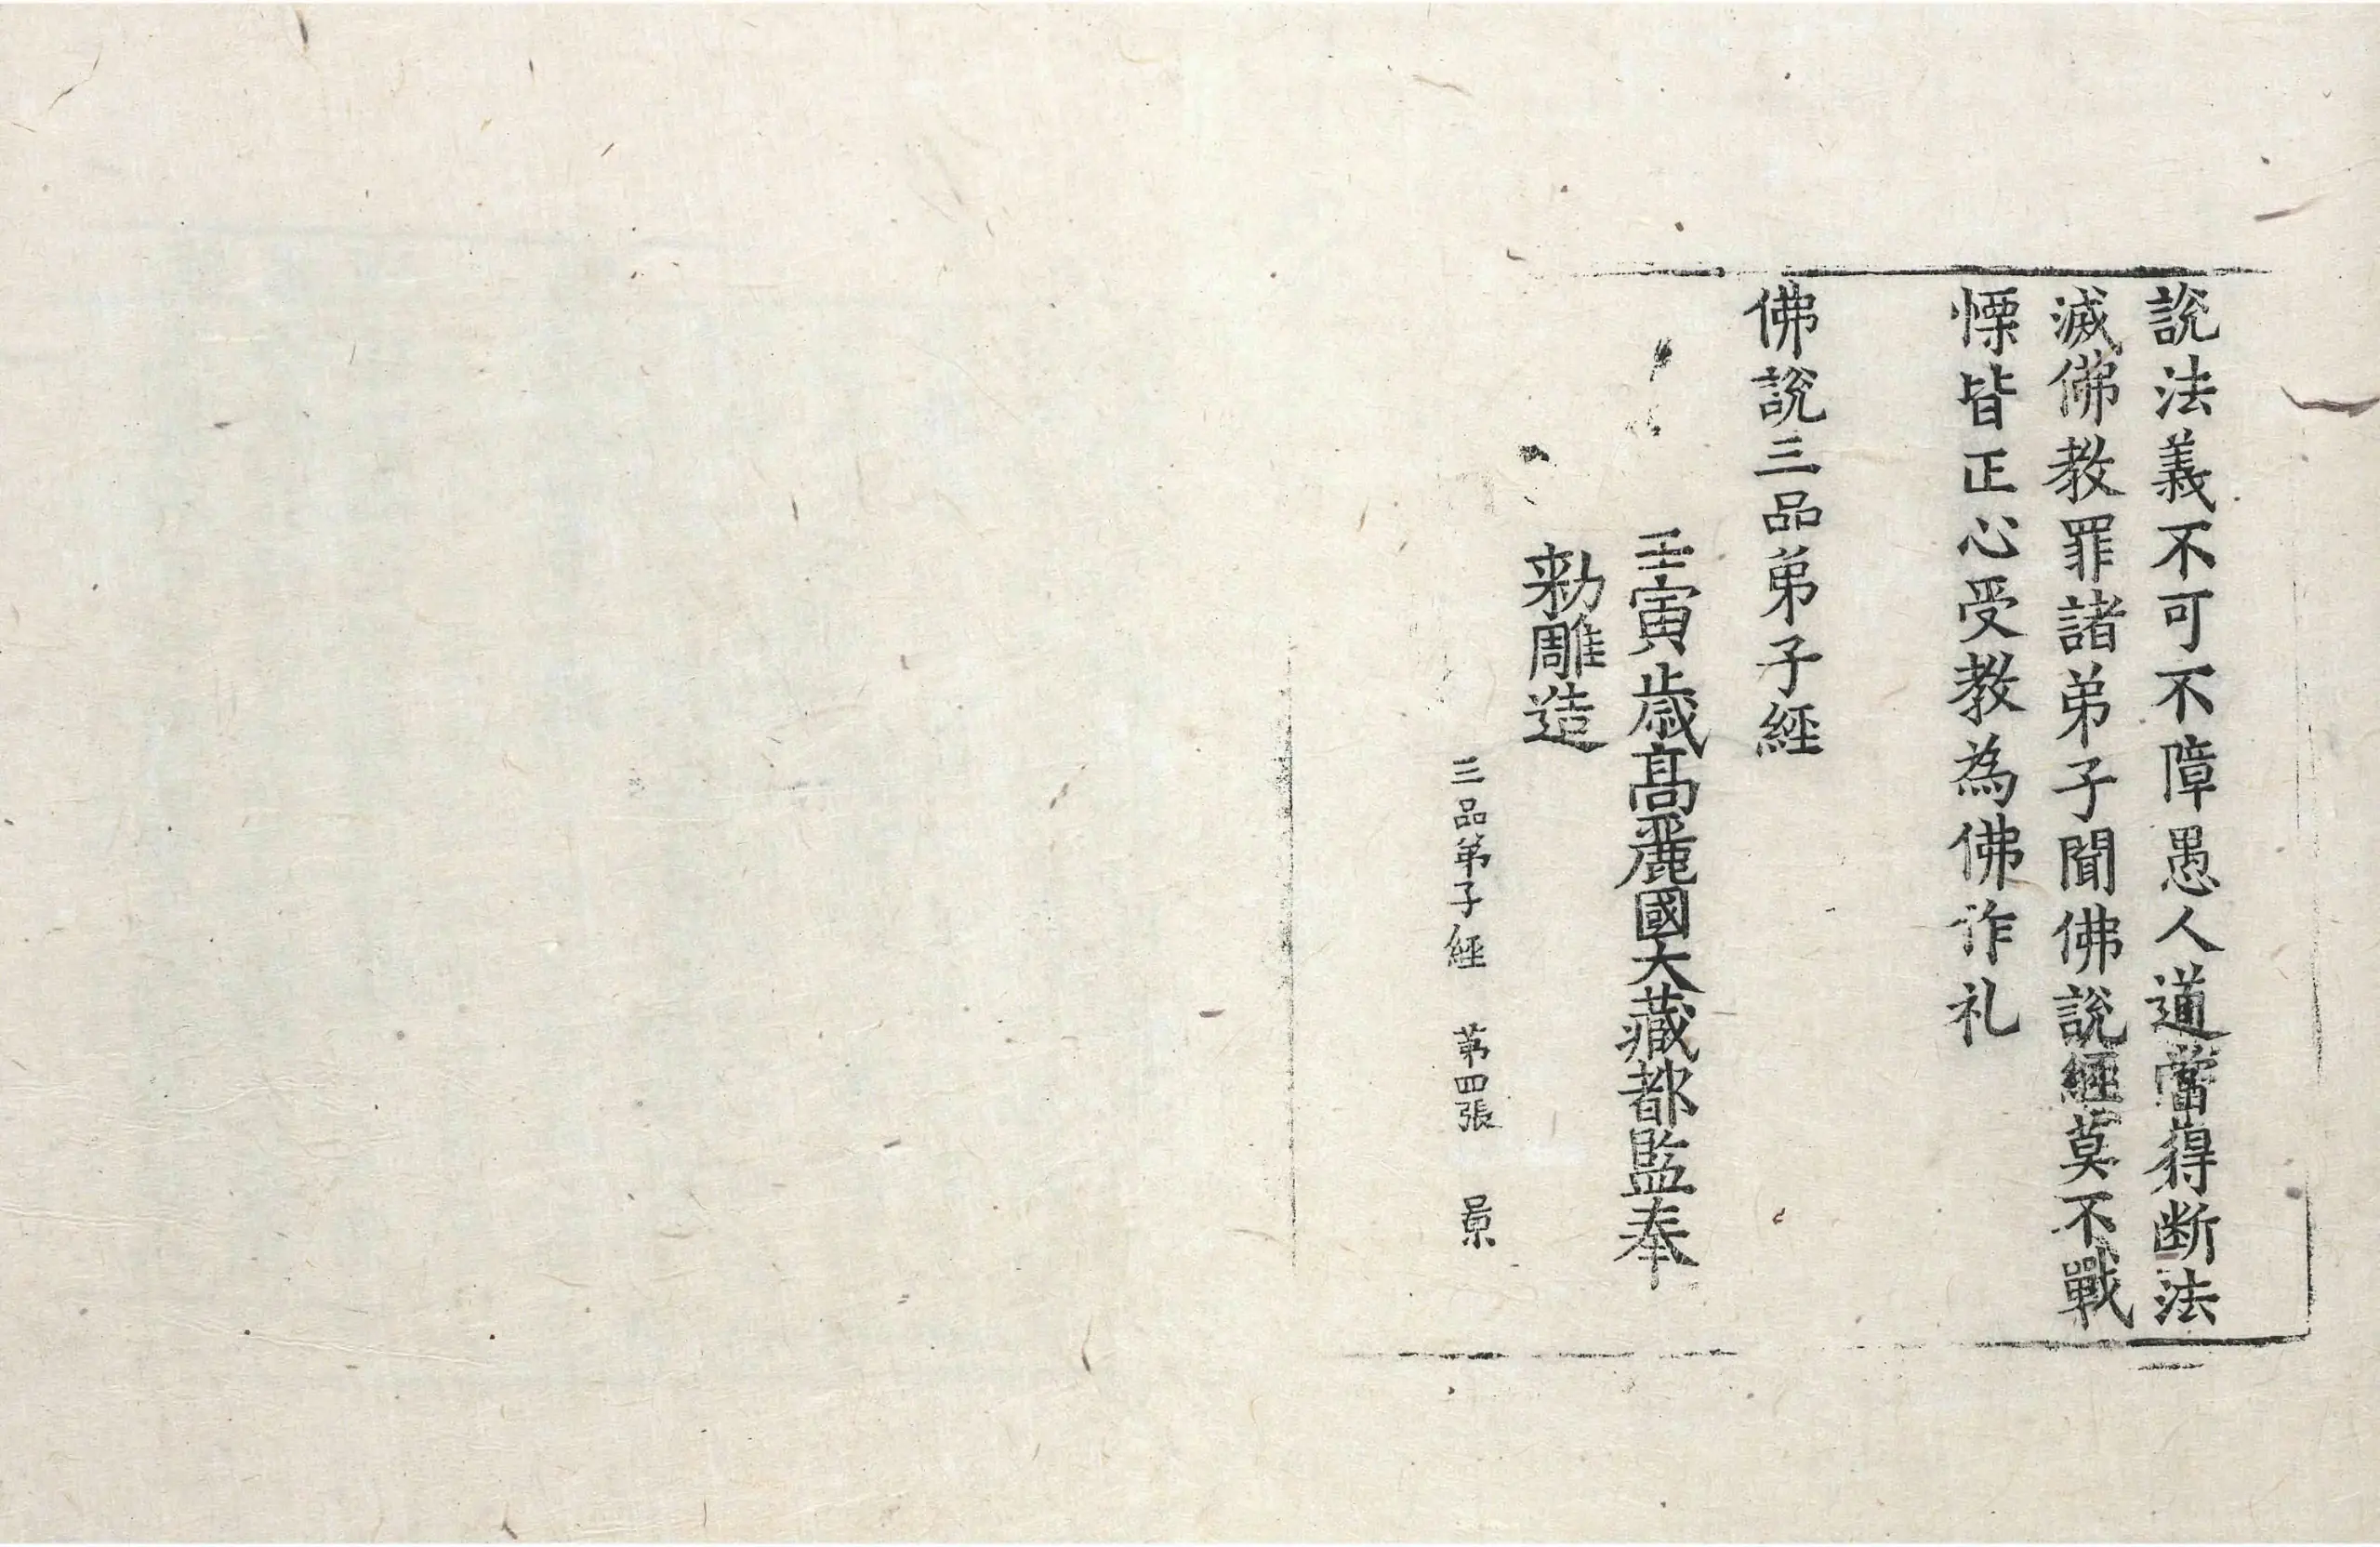 説法義不可不障愚人道當得断法
滅佛教罪諸弟子聞佛說經莫不戰
慄皆正心受教為佛作礼
佛說三品弟子經
壬寅歲高麗國大藏都監奉
勅雕造
三品弟子經 第四張 景